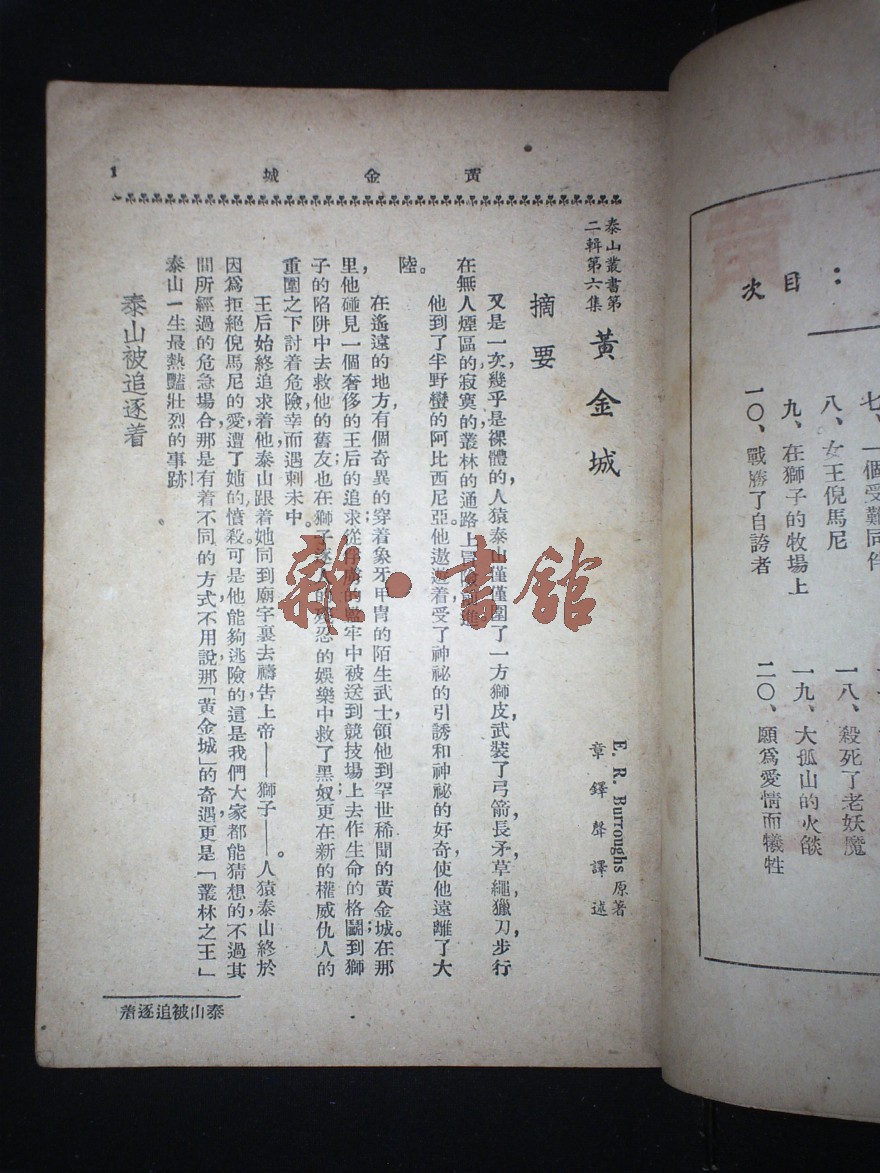 ：目次
七、一個受難同伴
八、女王倪馬尼
九、在獅子的牧場上
一〇、戰勝了自誇者
一八、殺死了老妖魔
一九、大孤山的火燄
二〇、願爲愛情而犧牲
黃金城
1
泰山叢書第
二輯第六集
黃金城
E. R. Burroughs 原著
章鐸聲譯述
摘要
又是一次，幾乎是裸體的，人猿泰山僅僅圍了一方獅皮，武裝了弓箭，長矛，草繩，獵刀，步行
在無人煙區的寂寞的叢林的通路上
他到了半野蠻的阿比西尼亞。他遨遊着，受了神祕的引誘和神祕的好奇，使他遠離了大
陸。
在遙遠的地方，有個奇異的穿着象牙甲冑的陌生武士，領他到罕世稀聞的黃金城。在那
里，他碰見一個奢侈的王后的追求；從 牢中被送到競技場上去作生命的格鬭；到獅
子的陷阱中去救他的舊友；也在獅子逐人的殘忍的娛樂中救了黑奴；更在新的權威仇人的
重圍之下討着危險，幸而遇刺未中。
王后始終追求着他，泰山跟着她同到廟宇裏去禱告上帝——獅子——。人猿泰山終於
因爲拒絕倪馬尼的愛，遭了她的憤殺。可是他能夠逃險的，這是我們大家都能猜想的，不過其
間所經過的危急場合，那是有着不同的方式，不用說，那「黃金城」的奇遇，更是「叢林之王」
泰山一生最熱豔壯烈的事跡！
泰山被追逐着
泰山被追逐着
雜·書館